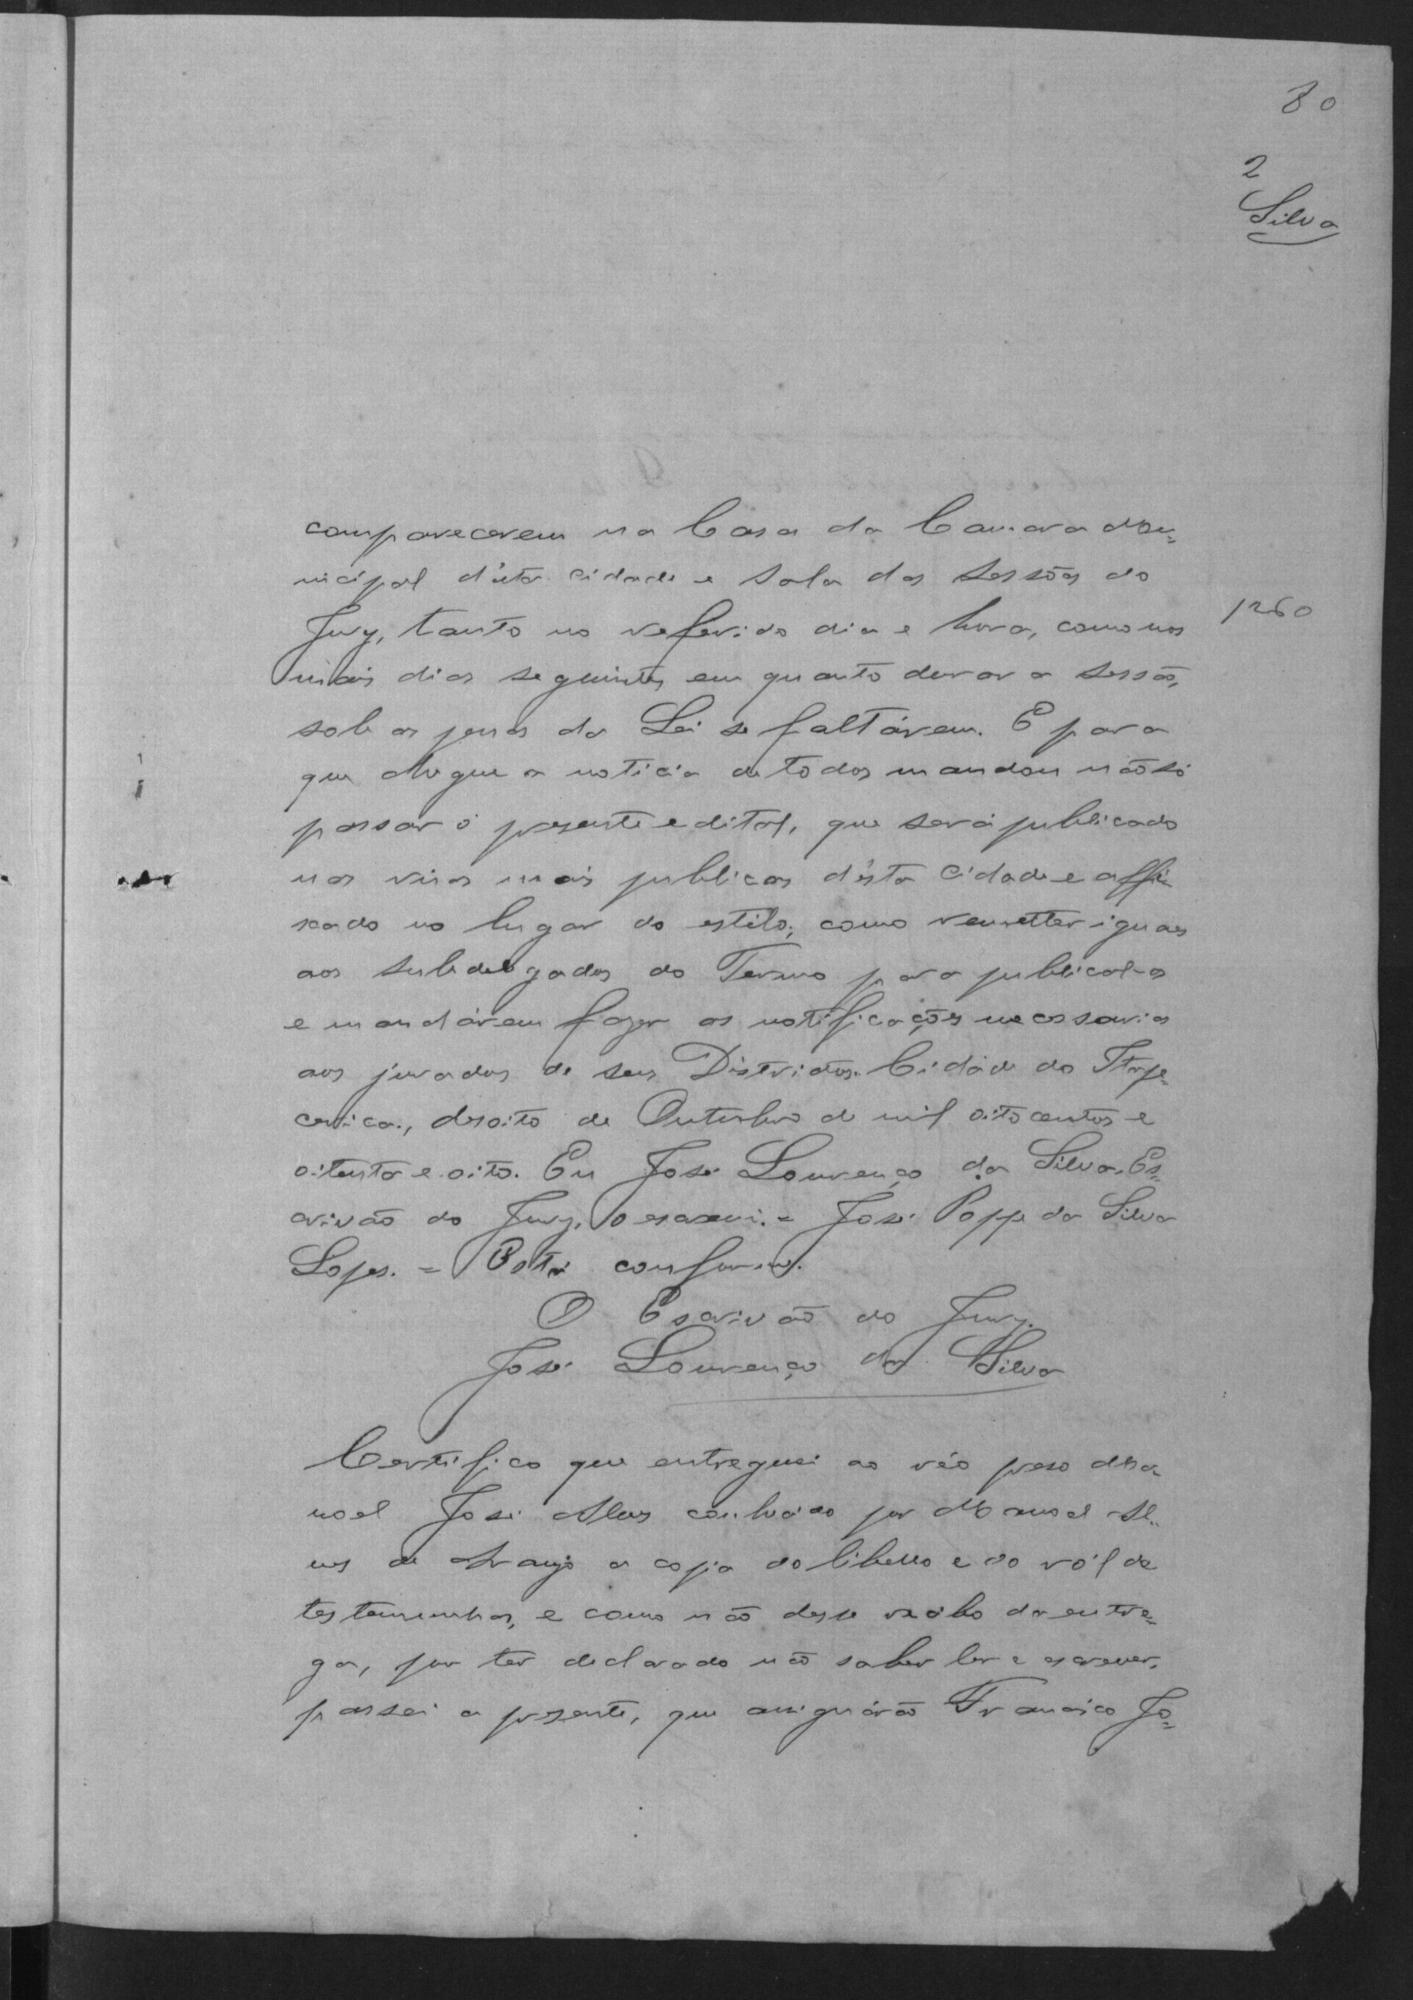 80
2
Silva
comparecerem na Casa da Camara Mu=
nicipal d'esta cidade e sala das sessões do
Jury, tanto no referido dia e hora, como nos
1260
mais dias seguintes em quanto durar a sessão,
sob as penas da Lei se faltárem. E para
que chegue a noticia de todos mandou não só
passar o presente edital, que será publicado
nas vias mais publicas d'esta Cidade e affi
xado no lugar do estilo, como remetter iguaes
aos subdelegados do Termo para publical-os
e mandárem fazer as notificações necessarias
aos jurados de seus Districtos. Cidade do Itape=
cerica, desoito de Outubro de mil oitocentos e
oitenta e oito. Eu José Lourenço da Silva, Es=
crivão do Jury, o escrevi. = José Poppe da Silva
Lopes. = Está conforme.
O Escrivão do Jury.
José Lourenço da Silva
Certifico que entreguei ao réo preso Ma=
noel José Alves conhecido por Manoel Al=
ves de Araujo a copia do libello e do ról de
testemunhas, e como não desse recibo da entre=
ga, por ter declarado não saber ler e escrever,
passei a presente, que assignárão Francisco Jo=